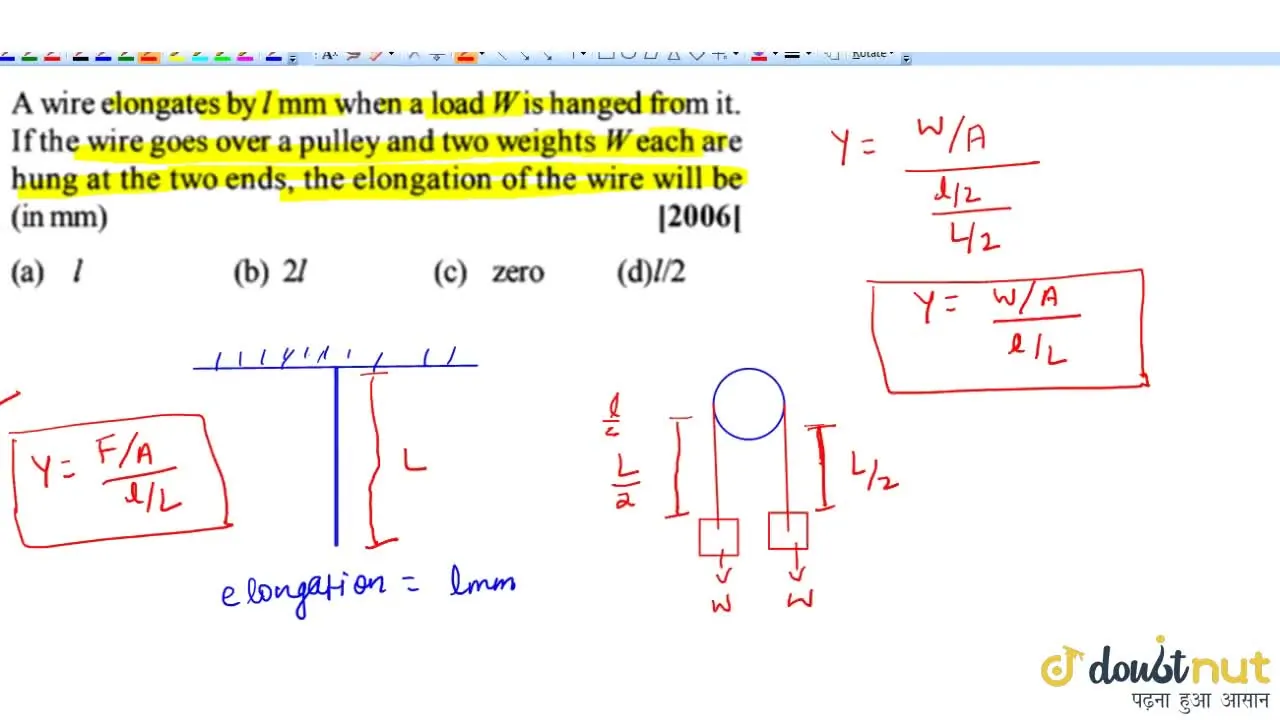 Rotate
A wire elongates by l mm when a load W is hanged from it.
If the wire goes over a pulley and two weights W each are
hung at the two ends, the elongation of the wire will be
(in mm) [2006[
(a) l (b) 2l (c) zero (d)l/2
Y = W/A
l/2
L/2
Y = W/A
l/L
Y = F/A
l/L
L
elongation = lmm
l
L
2
L/2
W
W
doubtnut
पढ़ना हुआ आसान